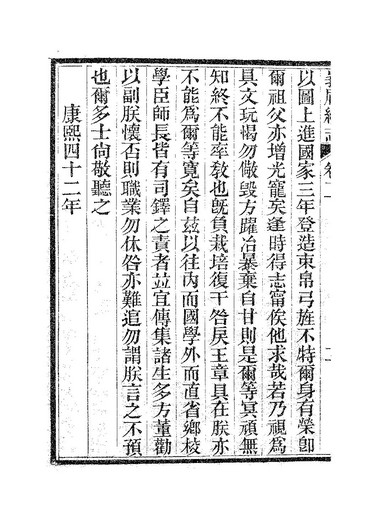 志 卷二 二
以圖上進國家三年登造束帛弓旌不特爾身有榮卽
爾祖父亦增光寵矣逢時得志甯俟他求哉若乃視爲
具文玩愒勿儆毀方躍冶暴棄自甘則是爾等冥頑無
知終不能率敎也旣負栽培復干咎戾王章具在朕亦
不能爲爾等寬矣自茲以往內而國學外而直省鄉校
學臣師長皆有司鐸之責者竝宜傳集諸生多方董勸
以副朕懷否則職業勿休咎亦難追勿謂朕言之不預
也爾多士尙敬聽之
康熙四十二年